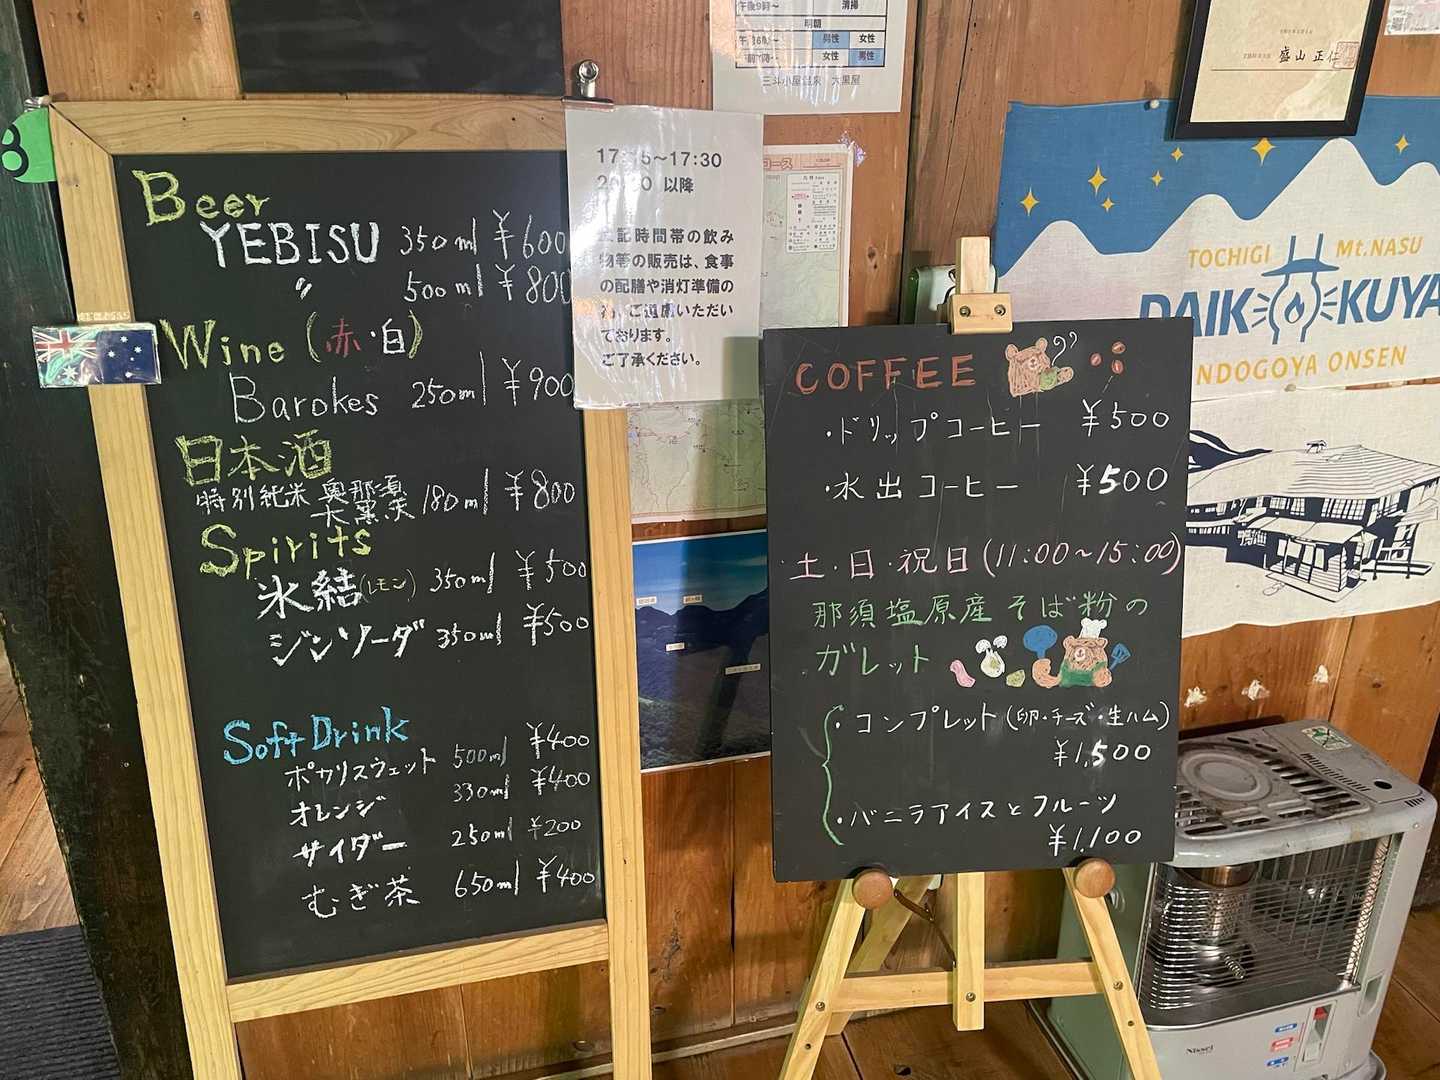 Beer
YEBISU 350ml ¥600
〃 500ml ¥800
Wine (赤・白)
Barokes 250ml ¥900
日本酒
特別純米 奥那須 大黒天 180ml ¥800
Spirits
氷結(レモン) 350ml ¥500
ジンソーダ 350ml ¥500
Soft Drink
ポカリスウェット 500ml ¥400
オレンジ 330ml ¥400
サイダー 250ml ¥200
むぎ茶 650ml ¥400
17: ~17:30
以降
記時間帯の飲み
物等の販売は、食事
の配膳や消灯準備の
ご遠慮いただい
ております。
ご了承ください。
午後9時~ 清掃
明朝
男性 女性
女性 男性
三斗小屋温泉 大黒屋
コース
盛山 正仁
TOCHIGI Mt.NASU
DAIKOKUYA
NDOGOYA ONSEN
COFFEE
・ドリップコーヒー ¥500
・水出コーヒー ¥500
土・日・祝日(11:00~15:00)
那須塩原産そば粉の
ガレット
・コンプレット(卵・チーズ・生ハム)
¥1,500
・バニラアイスとフルーツ
¥1,100
Nissei